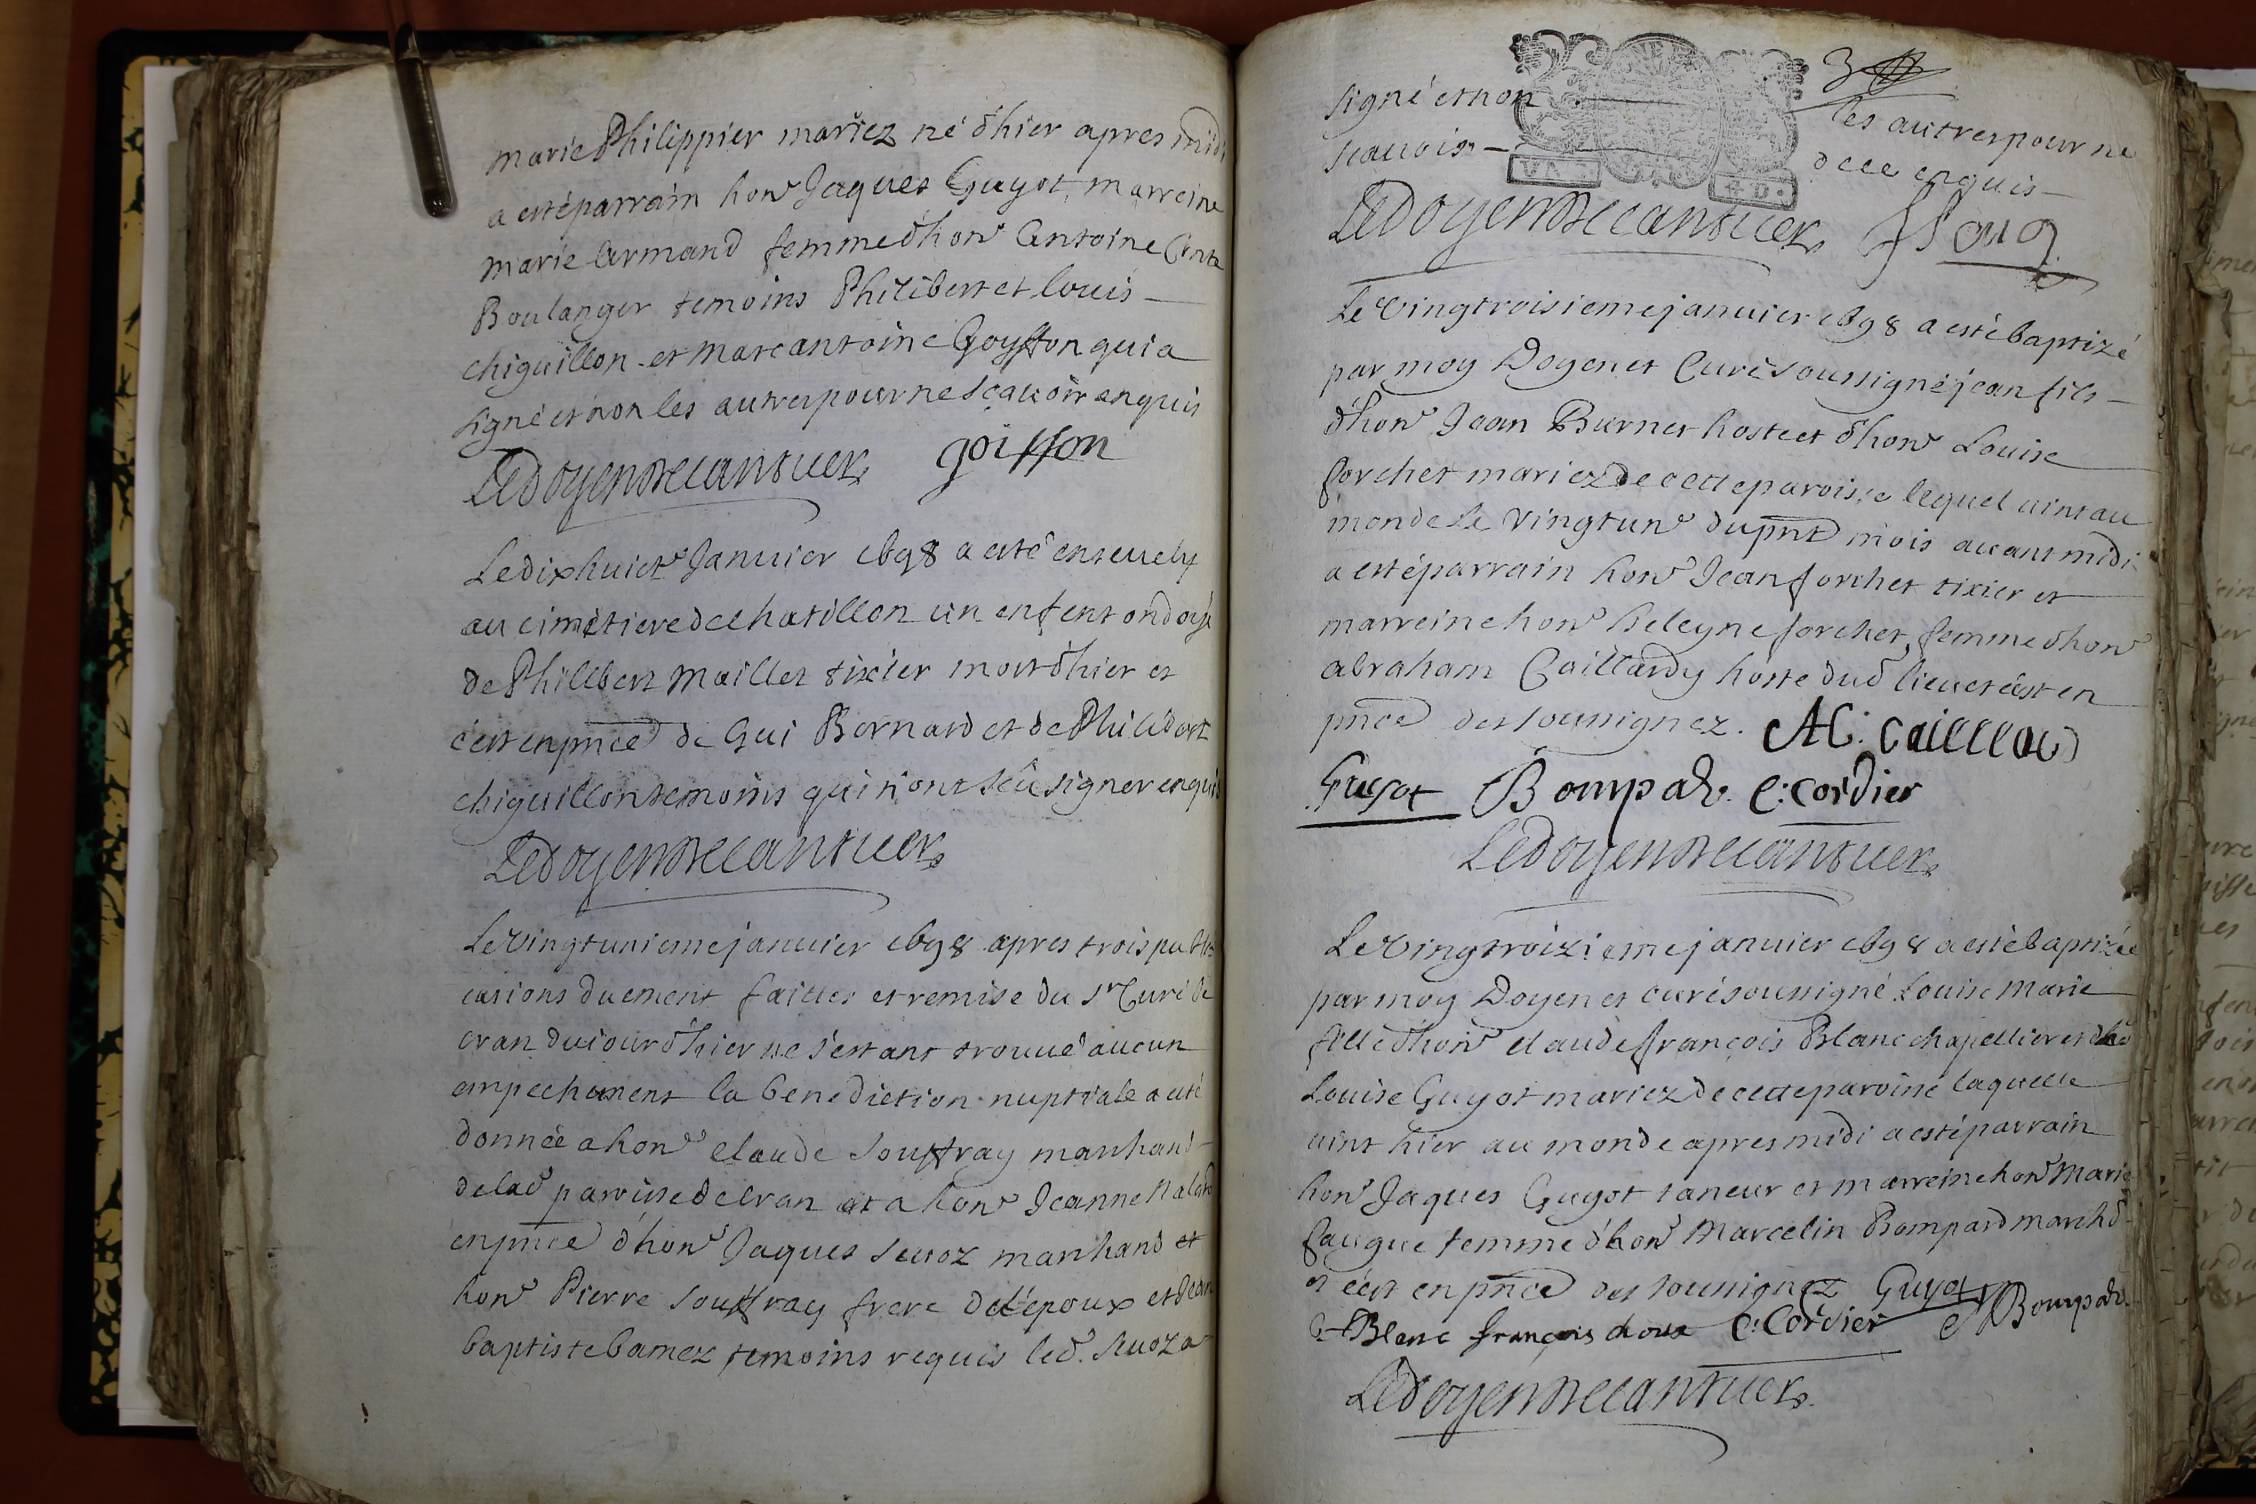 marie Philippier mariez né d'hier apres midi
a esté parrain hon^e Jaques Guyot, marreine
marie Armand femme d'hon^e Antoine
Boulanger temoins Philibert et Louis
chiguillon et Marc antoine Goyffon qui a
signé et non les autres pour ne sçavoir enquis
Le doyen goiffon
Le dix huict^e Janvier 1698 a esté ensevely
au cimetiere de chatillon un enfent ondoyé
de Philibert Maillet tixier mort d'hier et
c'est en pnce de Gui Bernard et de Philibert
chiguillon temoins qui n'ont sçeu signer enquis
Le doyen
Le vingt unieme janvier 1698 apres trois publi-
cations duement faittes et remise du s^r Curé de
cran du jour d'hier ne s'estant trouvé aucun
empechement la benediction nuptiale a esté
donnée a hon^e claude Souffray marchand
de lad^e parroisse de cran et a hon^e Jeanne
en pnce d'hon^e Jaques Sevoz marchand et
hon^e Pierre Souffray frere de l'époux et Jean
baptiste Gamez temoins requis led^t. Sevoz a
signé et non les autres pour ne
scavoir de ce enquis
Le doyen
Le vingtroisieme janvier 1698 a esté baptizé
par moy Doyen et Curé soussigné jean fils
d'hon^e Jean Burnet hoste et d'hon^e Louise
forchet mariez de cette paroisse lequel vint au
monde le vingt un^e du pnt mois avant midi
a esté parrain hon^e Jean forchet tixier et
marreine hon^e heleyne forchet, femme d'hon^e
abraham Caillardy hoste dud^t lieu et c'est en
pnce des soussignez.
Guyot Bompar C: Cordier
Le doyen
Le vingtroizieme janvier 1698 a esté baptizée
par moy Doyen et curé soussigné Louise Marie
fille d'hon^e claude françois Blanc chapellier et d'ho^e
Louise Guyot mariez de cette paroisse laquelle
vint hier au monde apres midi a esté parrain
hon^e Jaques Guyot taneur et marreine hon^e Marie
faugue femme d'hon^e Marcelin Bompard march^d
et c'est en pnce des soussignez Guyot Bompar
Blanc françois C: Cordier
Le doyen